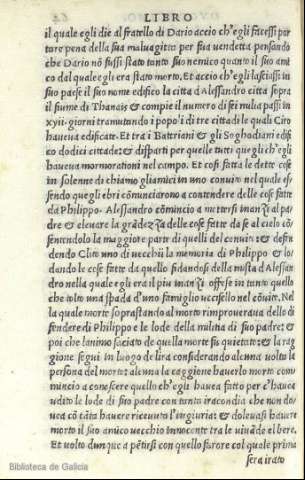 LIBRO
il quale egli die al fratello di Dario accio ch'egli facessi por
tare pena della sua maluagitta per sua vendetta pensando
che Dario nō fussi stato tanto suo nemico quanto il suo ami
co dal quale gli era stato morto. Et accio ch'egli lasciassi in
suo paese il suo nome edifico la citta d'Alessandro citta sopra
il fiume di Thanais & compie il numero di sei milia passi in
xvii. giorni tramutando i popoli di tre citta de quali Ciro
haueua edificate. Et tra i Battriani & gli Soghodiani edifi
co dodici cittade & disparti per quelle tutti que gli ch'egli
haueua mormorationi nel campo. Et cosi fatta le dette cose
in solenne di chiamo gli amici in uno conuito nel quale es
sendo que gli ebri cōmunciarono a contendere delle cose fatte
da Philippo. Alessandro cōmincio a mettersi inanzi al pa
dre & eleuare la grādezza delle cose fatte da se al cielo cō
sentendolo la maggiore parte di quelli del conuito & defen
dendo Clito uno di vecchii la memoria di Philippo & lo
dando le cose fatte da quello fidandosi della mista d'Alessan
dro nella quale egli era il piu inanzi offese in tanto quello
che tolto una spada d'uno famiglio uccisello nel cōuito. Nel
la quale morte soprastando al morto rimproueraua dello di
fendere di Philippo e le lode della militia di suo padre &
poi che lanimo saciato de quella morte sis quietato & la rag
gione segui in luogo de lira considerando alcuna volta la
persona del morto & alcuna la caggione hauerlo morto com
mincio a conoscere quello ch'egli haueua fatto per c'haue
udito le lode di suo padre con tanta iracondia che non do
uea cō tāta hauere riceuuto l'ingiurias & doleuasi hauere
morto il suo amico vecchio innocente tra le viuāde el bere.
Et volto dunque a pētirsi con quello furore col quale prima
sera irato
Biblioteca de Galicia